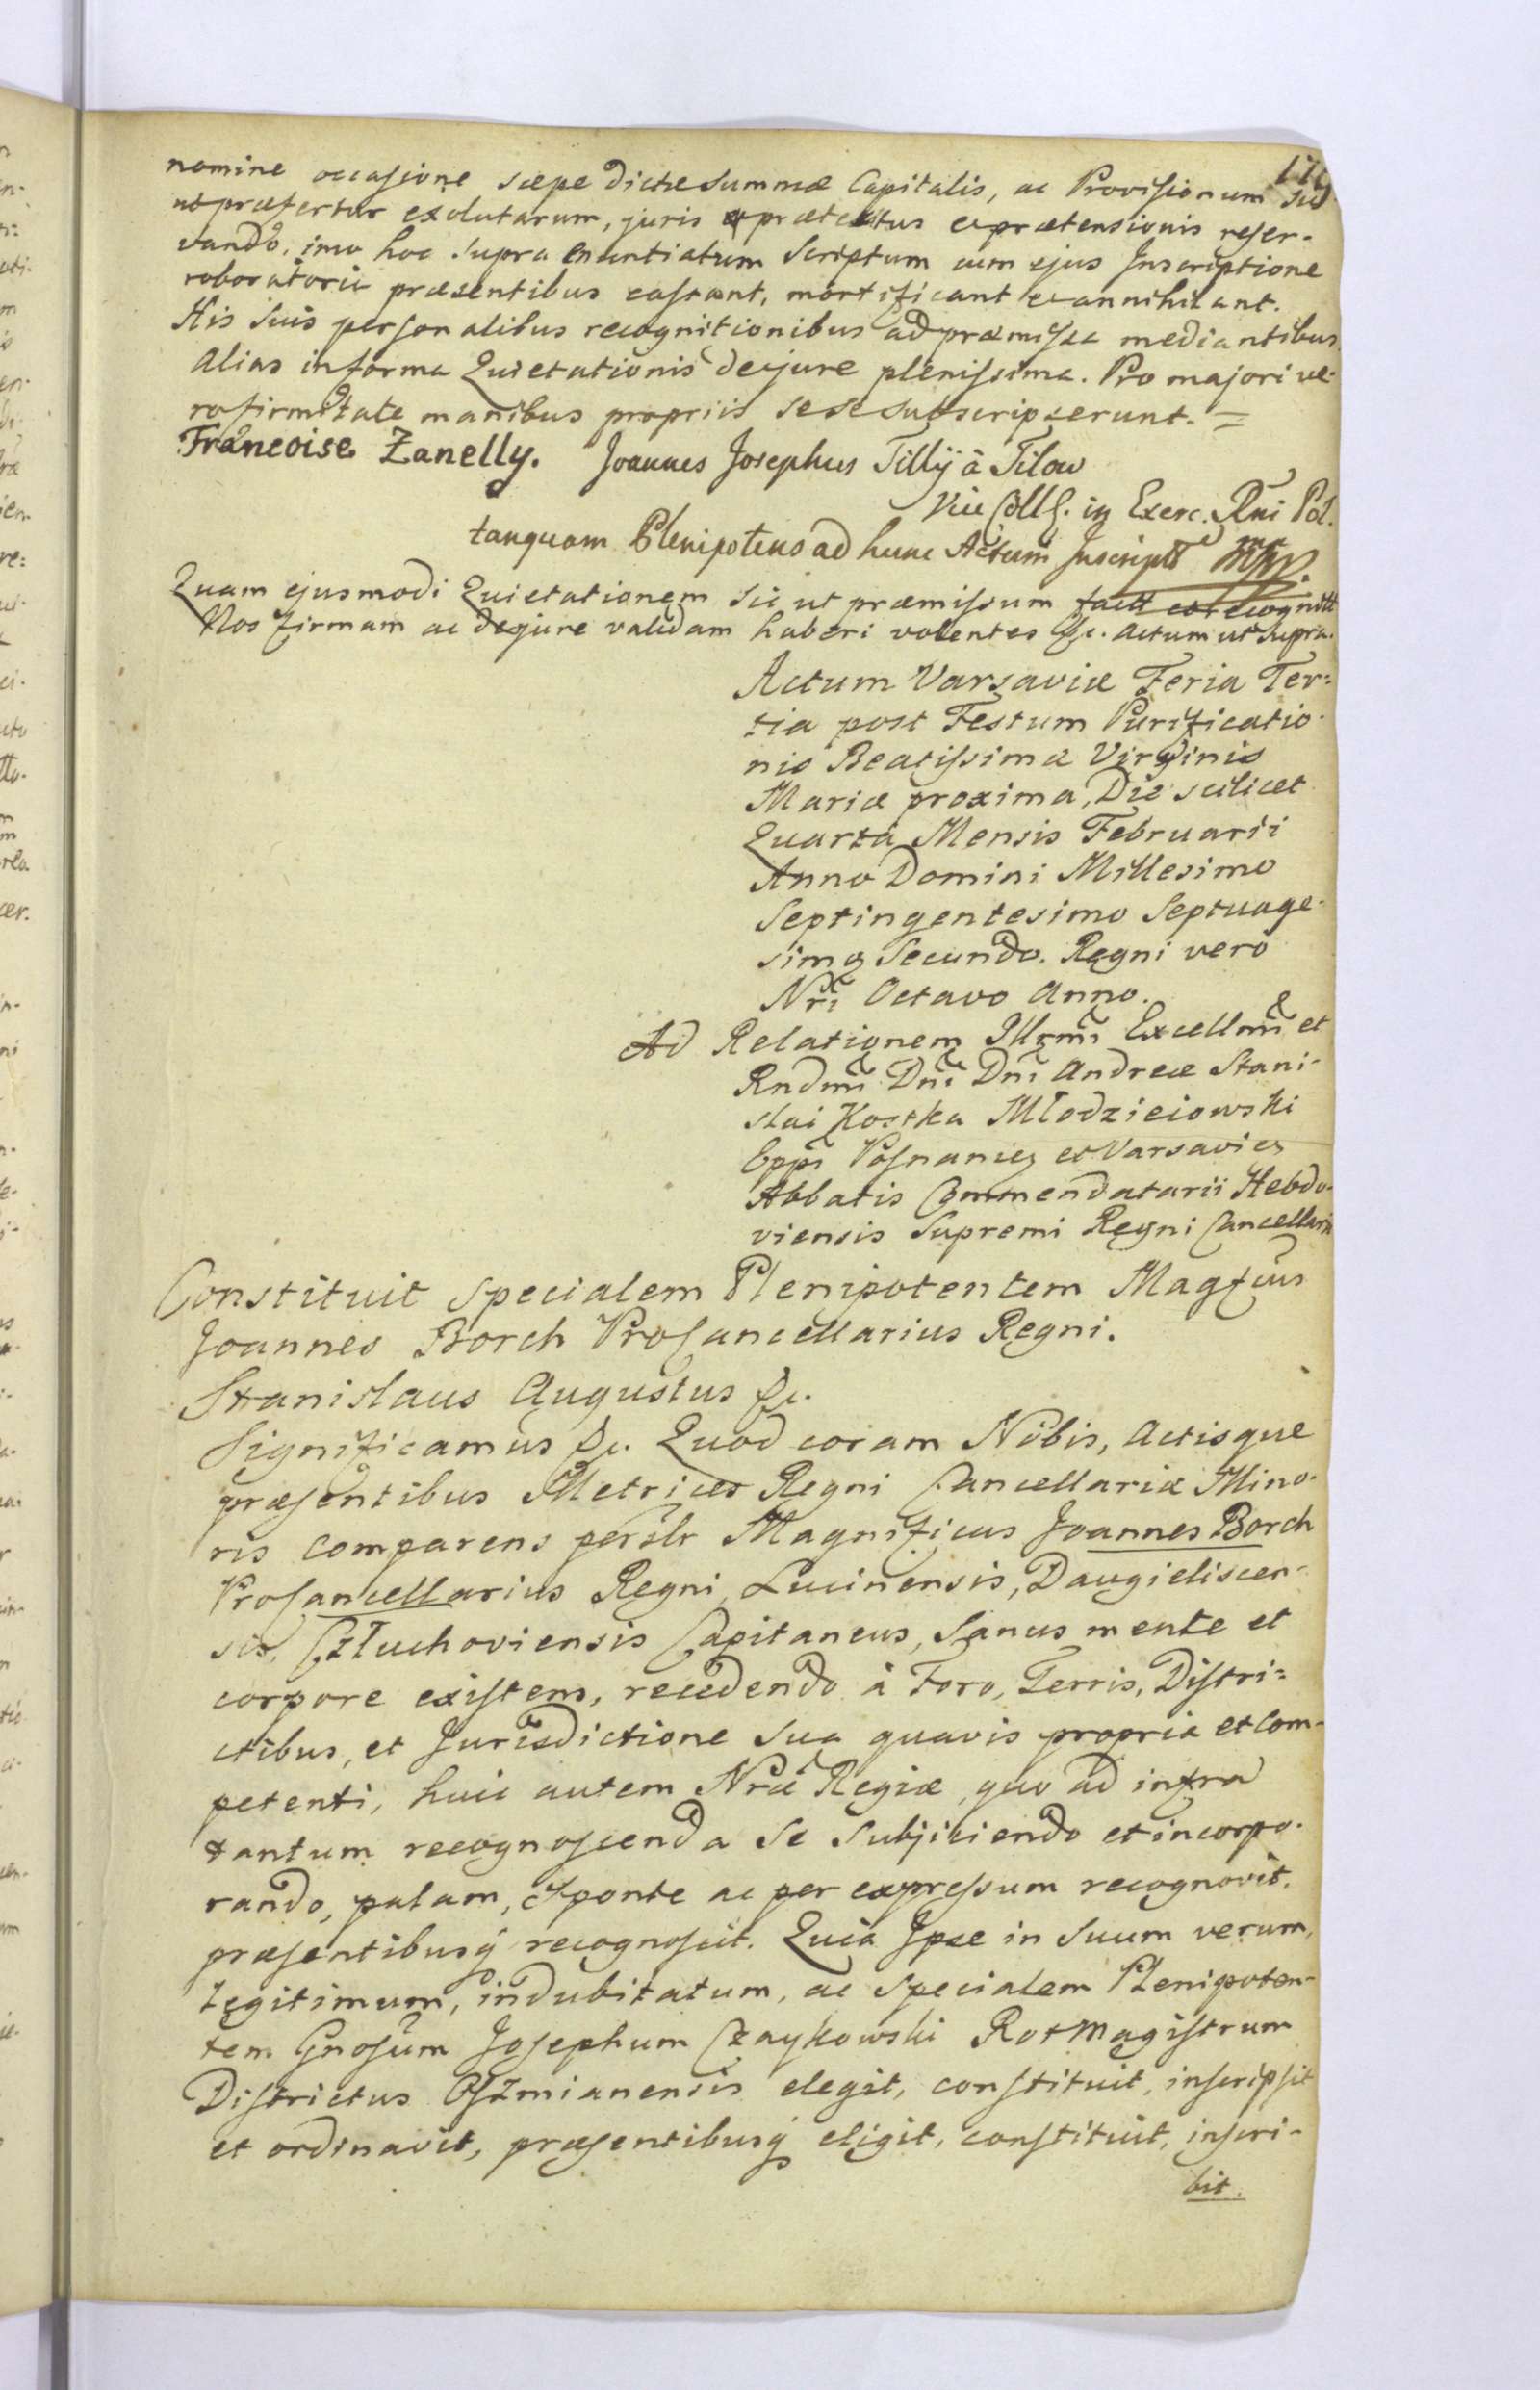 nomine occasione sæpe dictæ summæ Capitalis, ac Provisionum sic
ut præfertur exolutarum, juris prætextus et prætensionis reser-
vando, imo hoc supra enuntiatum Scriptum cum ejus Inscriptione
roboratoria præsentibus cassant, mortificant et annihilant.
His suis personalibus recognitionibus ad præmissa mediantibus.
Alias in forma Quietationis de jure plenissima. Pro majori ve-
ro firmitate manibus propriis sese subscripserunt. =
Francoise Zanelly. Joannes Josephus Tillÿ â Tilow
Vice Coll. in Exerc. Rni Pol.
tanquam Plenipotens ad hunc Actum Inscript mp.
Quam ejusmodi Quietationem sic ut præmissum
Nos firmam ac de jure validam haberi volentes &c. Actum ut supra.
Actum Varsaviæ Feria Ter=
tia post Festum Purificatio-
nis Beatissimæ Virginis
Mariæ proxima, Die scilicet
Quarta Mensis Februarii
Anno Domini Millesimo
Septingentesimo Septuage-
simo Secundo. Regni vero
Nri Octavo Anno.
Ad Relationem Illrmi Excellmi et
Rndmi Dni Dni Andreæ Stani-
slai Kostka Młodzieiowski
Eppi Posnanien et Varsavien
Abbatis Commendatarii Hebdo-
viensis Supremi Regni Cancellarii
Constituit specialem Plenipotentem Magfcus
Joannes Borch ProCancellarius Regni.
Stanislaus Augustus &c.
Significamus &c. Quod coram Nobis, Actisque
præsentibus Metrices Regni Cancellariæ Mino-
ris comparens persolr Magnificus Joannes Borch
ProCancellarius Regni, Lucinensis, Daugieliscen-
sis, Człuchoviensis Capitaneus, Sanus mente et
corpore existens, recedendo â Foro, Terris, Distri=
ctibus, et Jurisdictione sua quavis propria et Com-
petenti, huic autem Nræ Regiæ, quo ad infra
tantum recognoscenda se subjiciendo et incorpo-
rando, palam, sponte ac per expressum recognovit,
præsentibusq recognoscit. Quia Ipse in suum verum,
Legitimum, indubitatum, ac specialem Plenipoten-
tem Gnosum Josephum Czaykowski Rotmagistrum
Districtus Oszmianensis elegit, constituit, inscripsit
et ordinavit, præsentibusq eligit, constituit, inscri-
bit.